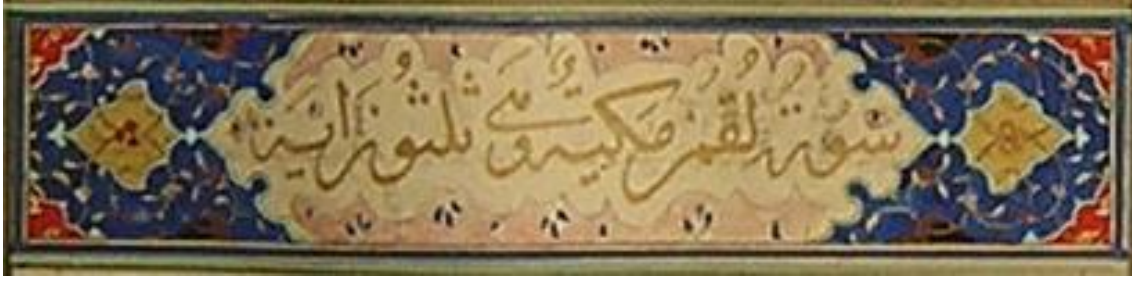 سورة لقمن مكية وهي ثلثون اية